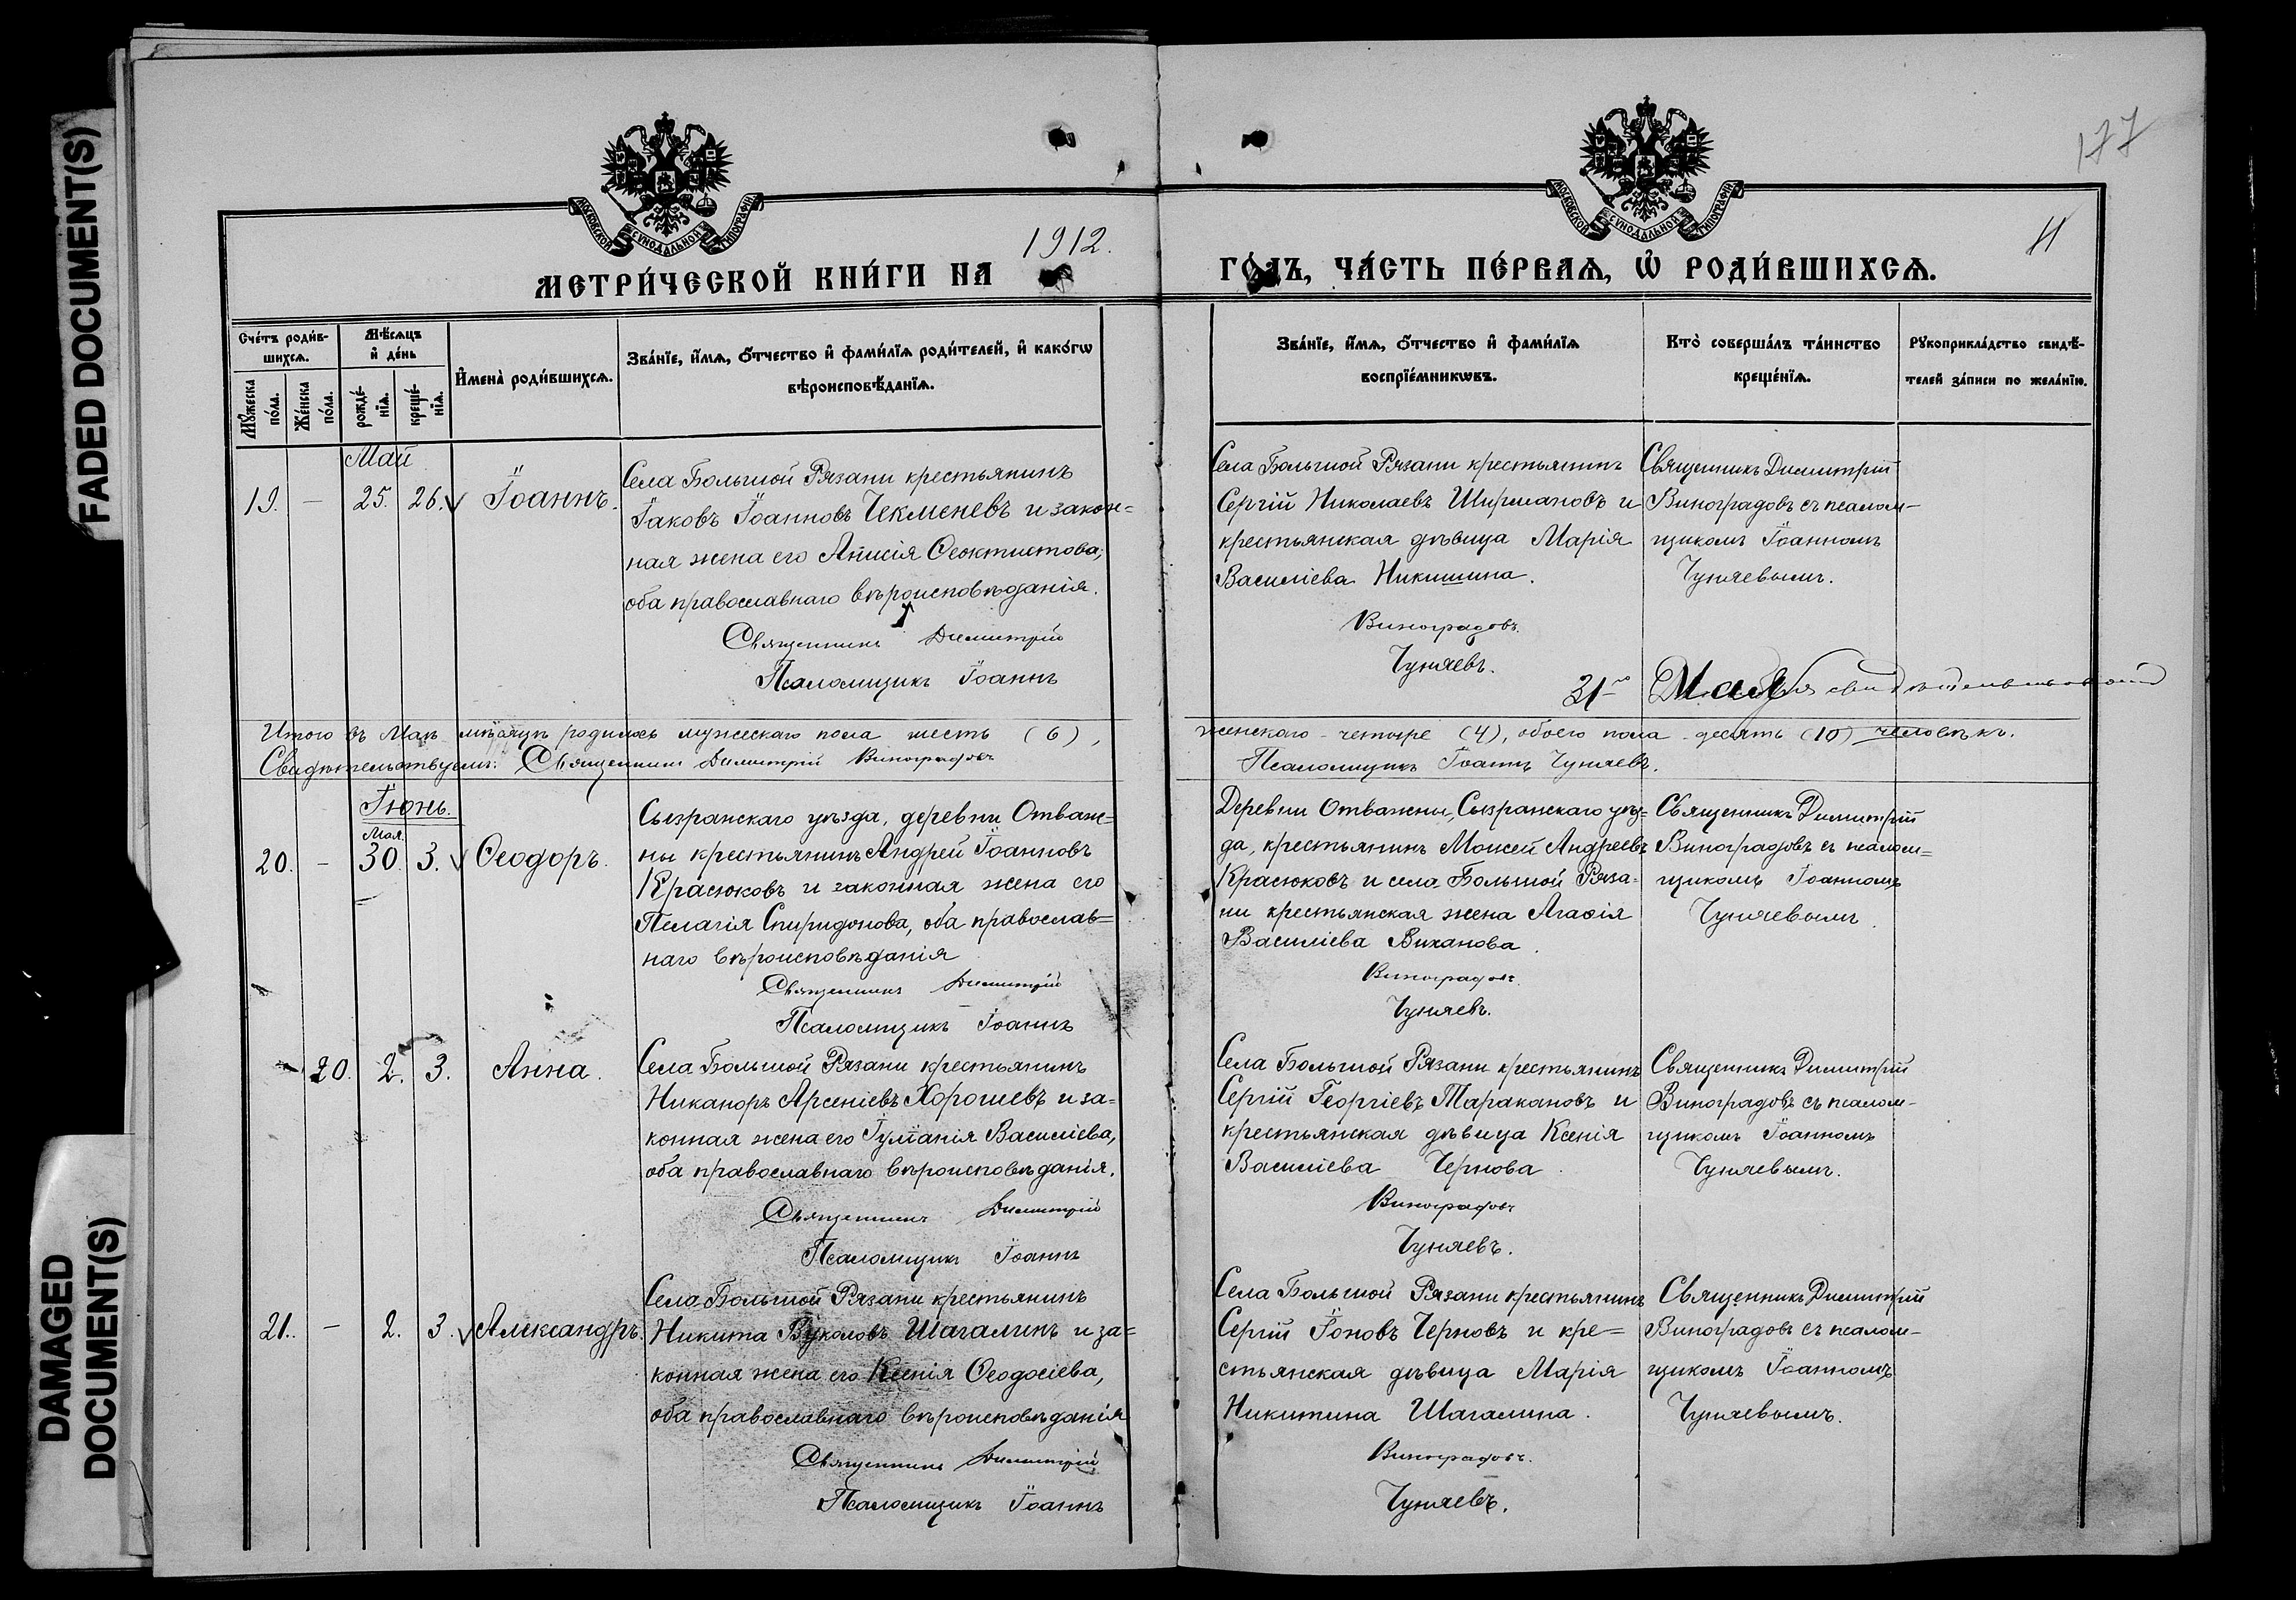 FADED DOCUMENT(S)
DAMAGED
DOCUMENT(S)
177
11
МОСКОВСКОЙ СУНОДАЛЬНОЙ ТИПОГРАФІИ
МОСКОВСКОЙ СУНОДАЛЬНОЙ ТИПОГРАФІИ
МЕТРИ́ЧЕСКОЙ КНИ́ГИ НА 1912. ГО́ДЪ, ЧА́СТЬ ПЕ́РВАѦ, Ѡ҆ РОДИ́ВШИХСѦ.
Сче́тъ роди́в-
шихсѧ.
Мꙋ́жеска
по́ла.
Же́нска
по́ла.
Мѣ́сѧцъ
и҆ де́нь
рожде́-
нїѧ.
креще́-
нїѧ.
И҆мена̀ роди́вшихсѧ.
Зва́нїе, и҆́мѧ, ѻ҆́тчество и҆ фами́лїѧ роди́телей, и҆ како́гѡ
вѣроисповѣ́данїѧ.
Зва́нїе, и҆́мѧ, ѻ҆́тчество и҆ фами́лїѧ
воспрїе́мникѡвъ.
Кто̀ соверша́лъ та́инство
креще́нїѧ.
Рꙋкоприкла́дство свидѣ́-
телей за́писи по жела́нїю.
Май
19. – 25. 26. Іоаннъ.
Села Большой Рязани крестьянинъ
Іаковъ Іоанновъ Чекменевъ и закон=
ная жена его Анисія Ѳеоктистова;
оба православнаго вѣроисповѣданія.
Священникъ Димитрій
Псаломщикъ Іоаннъ
Села Большой Рязани крестьянинъ
Сергій Николаевъ Ширмановъ и
крестьянская дѣвица Марія
Василіева Никишина.
Виноградовъ.
Чуняевъ.
Священникъ Димитрій
Виноградовъ съ псалом-
щикомъ Іоанномъ
Чуняевымъ.
31 Мая
Итого въ Маѣ мѣсяцѣ родилось мужескаго пола шесть (6),
женскаго - четыре (4), обоего пола - десять (10) человѣкъ.
Свидѣтельствуемъ: Священникъ Димитрій Виноградовъ
Псаломщикъ Іоаннъ Чуняевъ.
Іюнь.
Мая
20. – 30. 3. Ѳеодоръ.
Сызранскаго уѣзда, деревни Отваж=
ны крестьянинъ Андрей Іоанновъ
Красюковъ и законная жена его
Пелагія Спиридонова, оба православ=
наго вѣроисповѣданія
Священникъ Димитрій
Псаломщикъ Іоаннъ
Деревни Отважны, Сызранскаго уѣз=
да, крестьянинъ Моисей Андреевъ
Красюковъ и села Большой Ряза=
ни крестьянская жена Агаѳія
Василіева Виканова.
Виноградовъ.
Чуняевъ.
Священникъ Димитрій
Виноградовъ съ псалом=
щикомъ Іоанномъ
Чуняевымъ.
– 20. 2. 3. Анна.
Села Большой Рязани крестьянинъ
Никаноръ Арсеніевъ Хорошевъ и за=
конная жена его Іуліанія Василіева,
оба православнаго вѣроисповѣданія.
Священникъ Димитрій
Псаломщикъ Іоаннъ
Села Большой Рязани крестьянинъ
Сергій Георгіевъ Таракановъ и
крестьянская дѣвица Ксенія
Василіева Чернова.
Виноградовъ
Чуняевъ.
Священникъ Димитрій
Виноградовъ съ псалом-
щикомъ Іоанномъ
Чуняевымъ.
21. – 2. 3. Александръ.
Села Большой Рязани крестьянинъ
Никита Вуколовъ Шагалинъ и за=
конная жена его Ксенія Ѳеодосіева,
оба православнаго вѣроисповѣданія
Священникъ Димитрій
Псаломщикъ Іоаннъ
Села Большой Рязани крестьянинъ
Сергій Іоновъ Черновъ и кре=
стьянская дѣвица Марія
Никитина Шагалина.
Виноградовъ.
Чуняевъ.
Священникъ Димитрій
Виноградовъ съ псалом-
щикомъ Іоанномъ
Чуняевымъ.